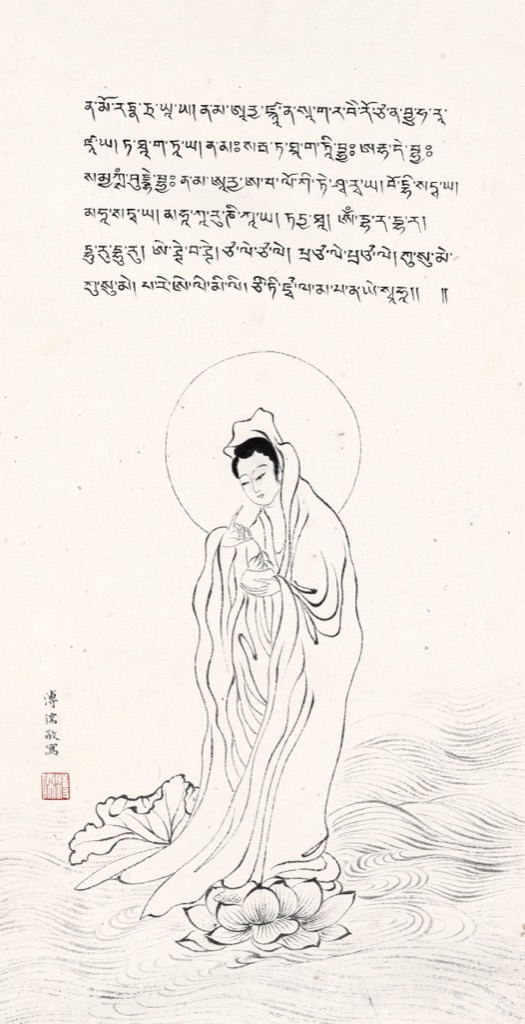 ན་མོ་རཏྣ་ཏྲ་ཡཱ་ཡ། ན་མ་ཨཱརྱ་ཛྙཱ་ན་སཱ་ག་ར་བཻ་རོ་ཙ་ན་བྱཱུ་ཧ་རཱ་
ཛཱ་ཡ། ཏ་ཐཱ་ག་ཏཱ་ཡ། ན་མཿ སརྦ་ཏ་ཐཱ་ག་ཏེ་བྷྱཿ ཨརྷ་ཏེ་བྷྱཿ
སམྱཀྶཾ་བུདྡྷེ་བྷྱཿ ན་མ་ཨཱརྱ་ཨ་ཝ་ལོ་ཀི་ཏེ་ཤྭ་རཱ་ཡ། བོ་དྷི་སཏྭཱ་ཡ།
མ་ཧཱ་སཏྭཱ་ཡ། མ་ཧཱ་ཀཱ་རུ་ཎི་ཀཱ་ཡ། ཏདྱ་ཐཱ། ཨོཾ་དྷ་ར་དྷ་ར།
དྷུ་རུ་དྷུ་རུ། ཨི་ཊྚེ་ཝ་ཊྚེ། ཙ་ལེ་ཙ་ལེ། པྲ་ཙ་ལེ་པྲ་ཙ་ལེ། ཀུ་སུ་མེ་
ཀུ་སུ་མེ། ཝ་རེ། ཨི་ལི་མི་ལི། ཙི་ཏི་ཛྭ་ལ་མ་པ་ན་ཡེ་སྭཱ་ཧཱ།། །།
溥儒敬寫